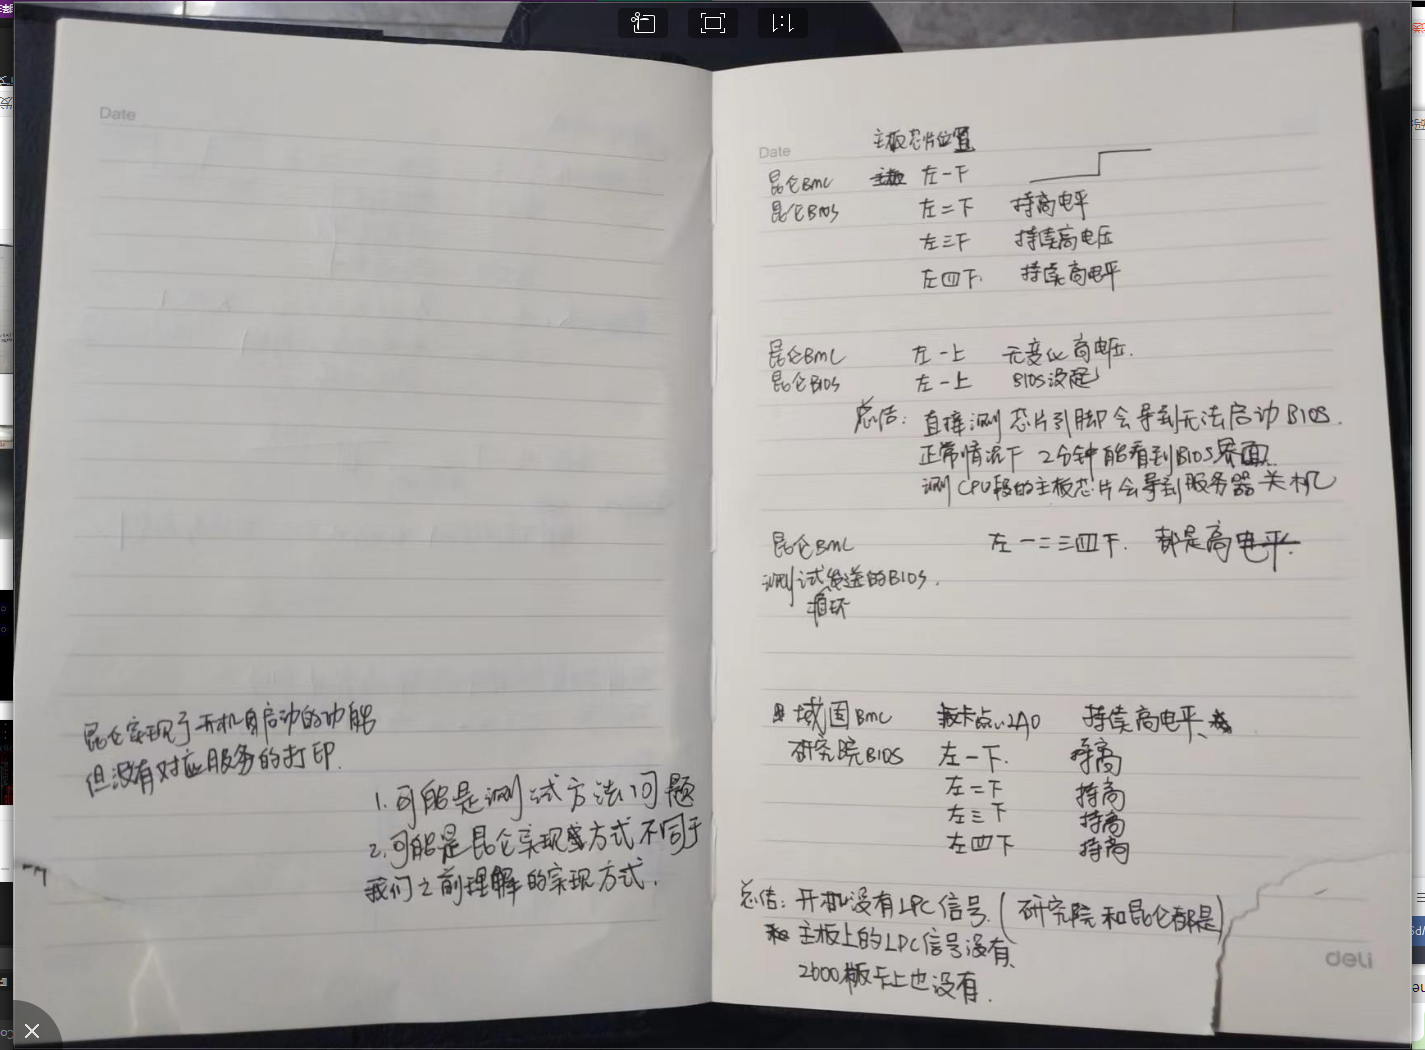 Date
昆仑实现了开机自启动的功能
但没有对应服务的打印.
1.可能是测试方法问题
2.可能是昆仑实现方式不同于
我们之前理解的实现方式.
Date
主板芯片位置
昆仑BMC 左一下
昆仑BIOS 左二下 持高电平
左三下 持续高电压
左四下. 持续高电平
昆仑BMC 左一上 无变化高电压.
昆仑BIOS 左一上 BIOS没起
总结: 直接测芯片引脚会导到无法启动BIOS.
正常情况下 2分钟能看到BIOS界面.
测CPU段的主板芯片会导到服务器关机
昆仑BMC 左一二三四下. 都是高电平.
测试发送的BIOS.
循环
域固BMC 卡点 持续高电平、
研究院BIOS 左一下. 持高
左二下 持高
左三下 持高
左四下 持高
总结: 开机没有LPC信号.(研究院和昆仑都是)
主板上的LPC信号没有、
2600板卡上也没有.
deli